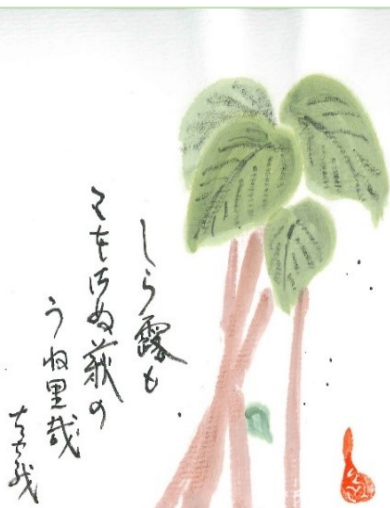 しら露も
こほさぬ萩の
うね里哉